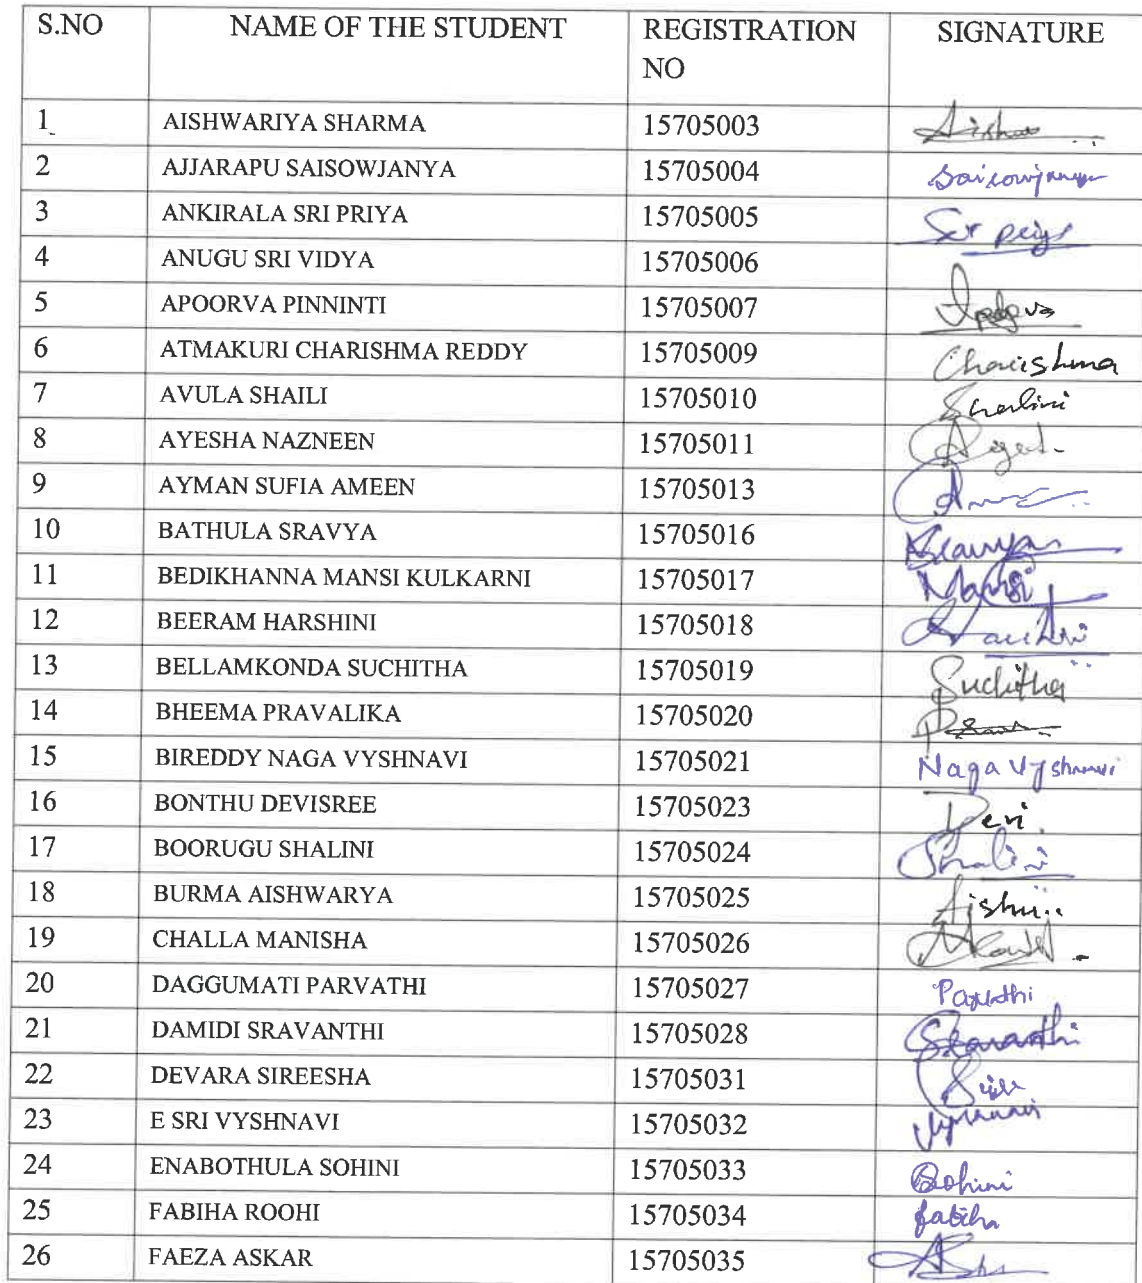 S.NO NAME OF THE STUDENT REGISTRATION NO SIGNATURE
1 AISHWARIYA SHARMA 15705003
2 AJJARAPU SAISOWJANYA 15705004 Saisowjanya
3 ANKIRALA SRI PRIYA 15705005
4 ANUGU SRI VIDYA 15705006
5 APOORVA PINNINTI 15705007
6 ATMAKURI CHARISHMA REDDY 15705009 Charishma
7 AVULA SHAILI 15705010
8 AYESHA NAZNEEN 15705011
9 AYMAN SUFIA AMEEN 15705013
10 BATHULA SRAVYA 15705016
11 BEDIKHANNA MANSI KULKARNI 15705017 Mansi
12 BEERAM HARSHINI 15705018
13 BELLAMKONDA SUCHITHA 15705019 Suchitha
14 BHEEMA PRAVALIKA 15705020
15 BIREDDY NAGA VYSHNAVI 15705021 Naga Vyshnavi
16 BONTHU DEVISREE 15705023 Devi
17 BOORUGU SHALINI 15705024 Shalini
18 BURMA AISHWARYA 15705025
19 CHALLA MANISHA 15705026
20 DAGGUMATI PARVATHI 15705027 Parvathi
21 DAMIDI SRAVANTHI 15705028 Sravanthi
22 DEVARA SIREESHA 15705031
23 E SRI VYSHNAVI 15705032
24 ENABOTHULA SOHINI 15705033 Sohini
25 FABIHA ROOHI 15705034 fabiha
26 FAEZA ASKAR 15705035